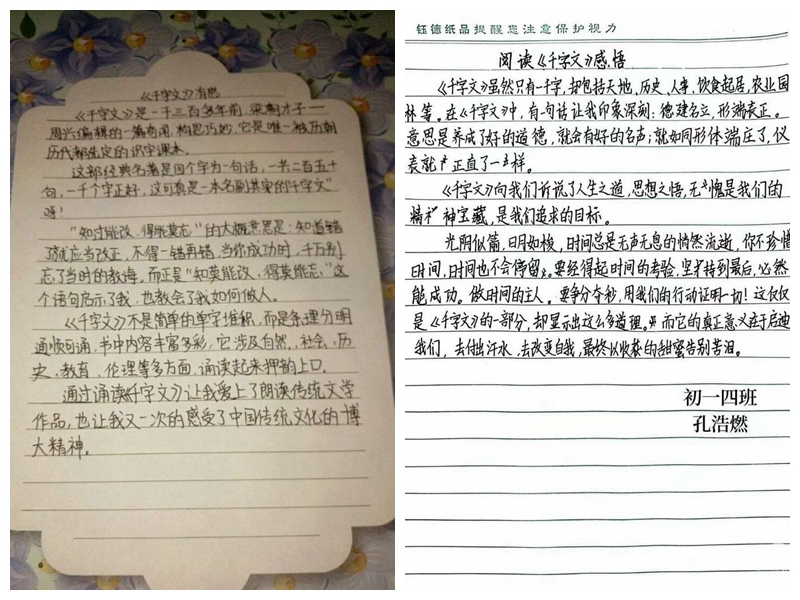 《千字文》有感
《千字文》是一千三百多年前,梁朝才子——
周兴编辑的一篇奇闻,构思巧妙,它是唯一被历朝
历代都选定的识字课本。
这部经典名著是四个字为一句话,一共二百五十
句,一千个字正好,这可真是一本名副其实的“千字文”
呀!
“知过能改,得能莫忘”的大概意思是:知道错
了就应当改正,不得一错再错,当你成功时,千万别
忘了当时的教诲,而正是“知莫能改,得莫能忘,”这
个语句启示了我,也教会了我如何做人。
《千字文》不是简单的单字堆积,而是条理分明
通顺可诵,书中内容丰富多彩,它涉及自然、社会、历
史、教育、伦理等多方面,诵读起来押韵上口。
通过诵读《千字文》,让我爱上了朗读传统文学
作品,也让我又一次的感受了中国传统文化的博
大精神。
钰德纸品提醒您注意保护视力
阅读《千字文》感悟
《千字文》虽然只有一千字,却包括天地、历史、人事、饮食起居,农业园
林等。在《千字文》中,有一句话让我印象深刻:德建名立,形端表正。
意思是养成了好的道德,就会有好的名声;就如同形体端庄了,仪
表就正直了一样。
《千字文》向我们诉说了人生之道,思想之悟,无愧是我们的
精神宝藏,是我们追求的目标。
光阴似箭,日月如梭,时间总是无声无息的悄然流逝,你不珍惜
时间,时间也不会停留。要经得起时间的考验,坚持到最后,必然
能成功。做时间的主人。要争分夺秒,用我们的行动证明一切!这仅仅
是《千字文》的一部分,却显示出这么多道理。而它的真正意义在于启迪
我们,去付出汗水,去改变自我,最终以收获的甜蜜告别苦泪。
初一四班
孔浩燃